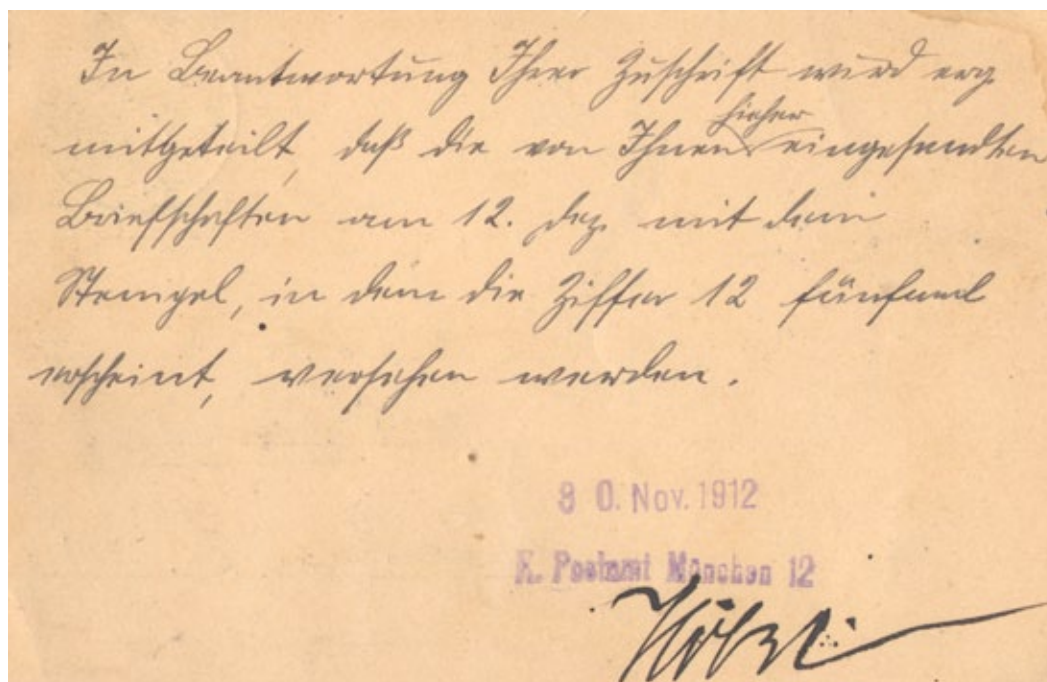 In Beantwortung Ihrer Zuschrift wird erg.
mitgeteilt, daß die von Ihnen hieher eingesandten
Briefschaften am 12. Dez. mit dem
Stempel, in dem die Ziffer 12 fünfmal
erscheint, versehen werden.
30. Nov. 1912
K. Postamt München 12